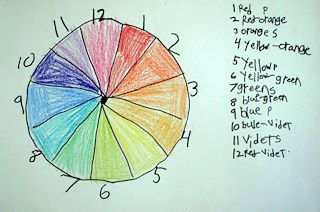 12
1
11
2
10
3
9
4
8
5
7
6
1 Red P
2 Red-orange
3 oranges S
4 Yellow-orange
5 Yellow P
6 Yellow-green
7 greens
8 blue-green
9 blue P
10 bule-Videt
11 Videts
12 Red-Videt.